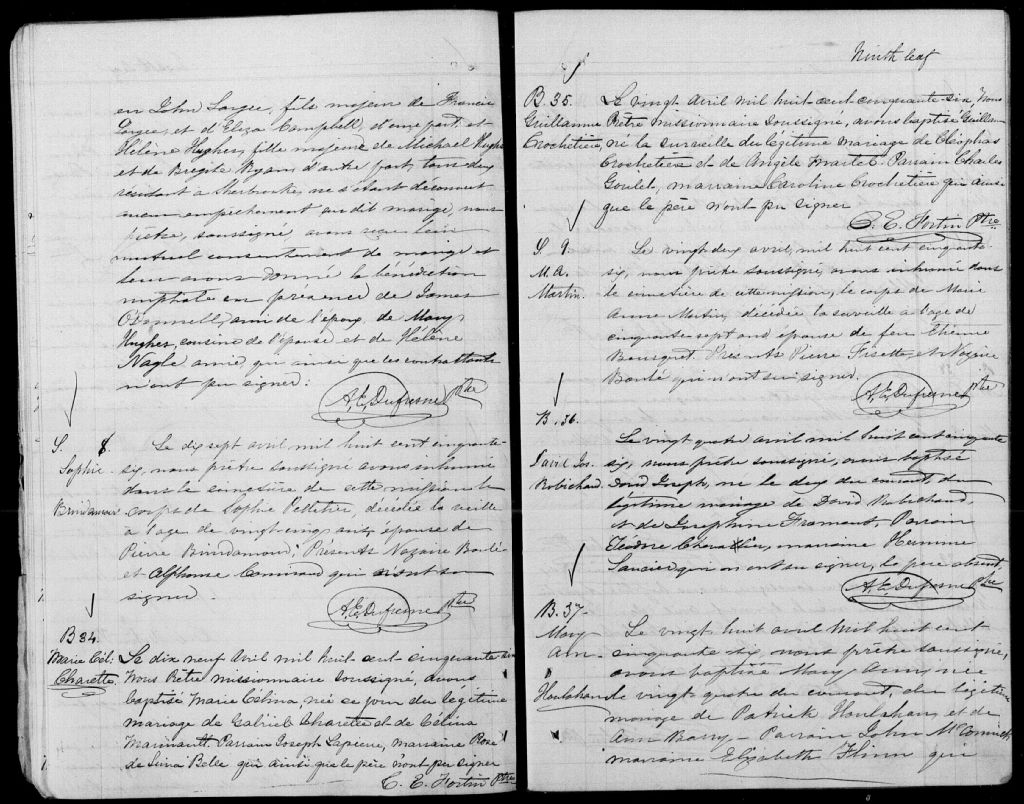 en John Lorgee, fils majeur de Francis
Lorgee, et d'Eliza Campbell, d'une part et
Hélène Hughes, fille majeure de Michael Hughes
et de Brigite Ryan d'autre part, tous deux
résidant à Sherbrooke, ne s'étant découvert
aucun empêchement au dit mariage, nous
prêtre, soussigné avons reçu leur
mutuel consentement de mariage et
leur avons donné la bénédiction
nuptiale en présence de James
O'Donnell, ami de l'époux, de Mary
Hughes, cousine de l'épouse et de Hélène
Nagle amie, qui ainsi que les contractants
n'ont pu signer.
A, E, Dufresne Ptre
S. 8.
Sophie
Brindamour
Le dix sept avril mil huit cent cinquante-
six, nous prêtre soussigné avons inhumé
dans le cimetière de cette mission le
corps de Sophie Pelletier, décédée la veille
à l'age de vingt-cinq ans, épouse de
Pierre Brindamour. Présents Nazaire Boulé
et Alphonse qui n'ont su
signer.
A, E, Dufresne Ptre
B 34.
Marie Cél.
Charette.
Le dix neuf Avril mil huit cent cinquante six
Nous Prêtre missionnaire soussigné, avons
baptisé Marie Célina, née ce jour du légitime
mariage de Gabriel Charette et de Célina
Marinault. Parrain Joseph Lapierre, marraine Rose
de Lima Belle qui ainsi que le père n'ont pu signer
C. E. Fortin Ptre
Ninth leaf
B. 35.
Guillaume
Crochetière,
Le vingt Avril mil huit cent cinquante six, Nous
Prêtre missionnaire soussigné, avons baptisé Guillaume
né la surveille du légitime mariage de Cléophas
Crochetière et de Angèle Martel. Parrain Charles
Goulet, marraine Caroline Crochetière qui ainsi
que le père n'ont pu signer
C. E. Fortin Ptre
S. 9.
M. A.
Martin.
Le vingt deux avril, mil huit cent cinquante-
six, nous prêtre soussigné, avons inhumé dans
le cimetière de cette mission, le corps de Marie
Anne Martin, décédée la surveille à l'age de
cinquante sept ans épouse de feu Etienne
Bousquet. Présents Pierre Fisette et Nazaire
Boulé qui n'ont su signer.
A, E, Dufresne Ptre
B. 36.
David Jos.
Robichaud.
Le vingt quatre avril mil huit cent cinquante
six, nous prêtre soussigné, avons baptisé
David Joseph, né le deux du courant du
légitime mariage de David Robichaud,
et de Josephine Fromant. Parrain
Isidore Chevalier, marraine Hermine
Saucier qui n'ont su signer, le père absent.
A, E, Dufresne Ptre
B. 37-
Mary
Ann-
Houlahan
Le vingt huit avril mil huit cent
cinquante six, nous prêtre soussigné,
avons baptisé Mary Ann, née
le vingt quatre du courant, du légitime
mariage de Patrick Houlahan, et de
Ann Barry - Parrain John McCormick
marraine Elizabeth Flinn qui